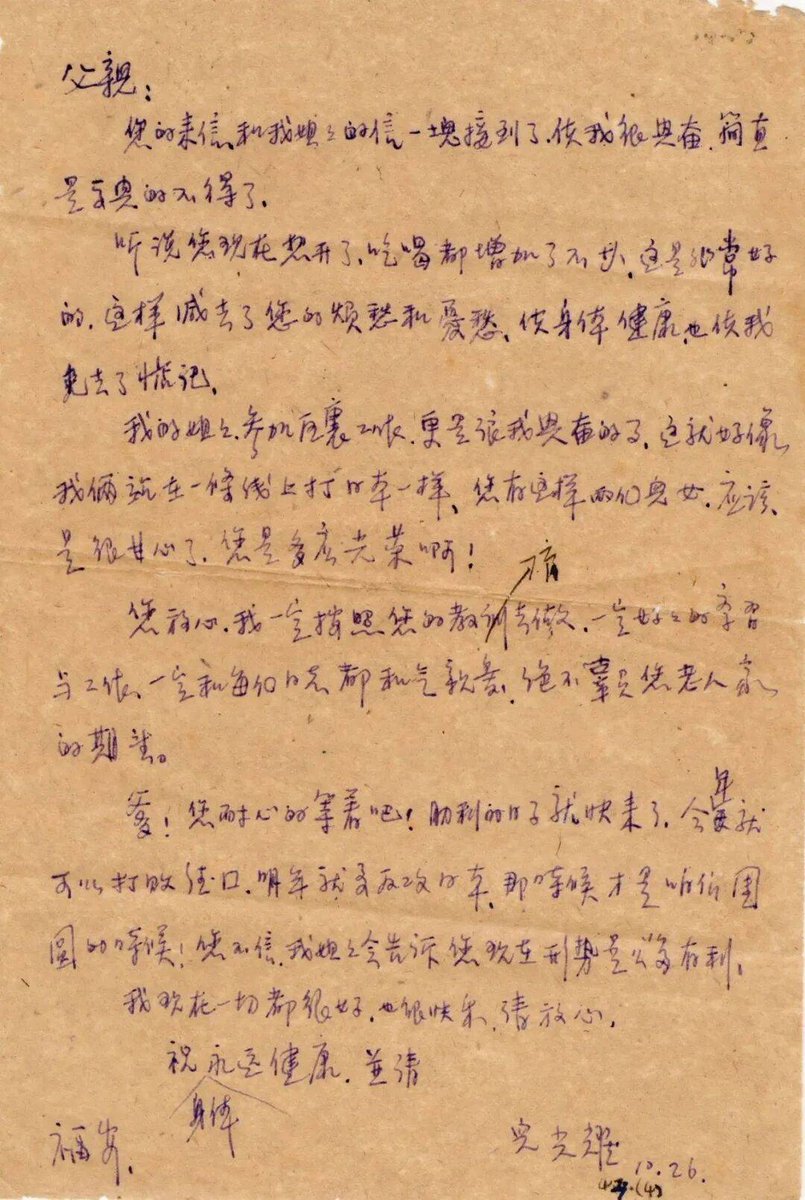 父親：
您的来信、和我姐々的信一塊接到了、使我很興奋、簡直
是高興的不得了、
听说您现在想开了、吃喝都增加了不少、这是非常好
的、这样減去了您的烦愁和憂愁、使身体健康、也使我
免去了惦记、
我的姐々、参加区裏工作、更是很我興奋的了、这就好像
我俩站在一條线上打日本一样、您有这样两们児女、应该
是很甘心了、您是多広光荣啊！
您放心、我一定按照您的教育去做、一定好々的学習
与工作、一定和每们同志都和气親爱、绝不辜負您老人家
的期望。
爹！您耐心的等着吧！勝利的日子就快来了、今年就
可以打败德口、明年就要反攻日本、那時候才是咱们團
圆的時候！您不信、我姐々会告诉您现在形势是多有利、
我现在一切都很好、也很快乐、请放心、
祝身体永远健康、並请
福安、
児光耀
10.26.